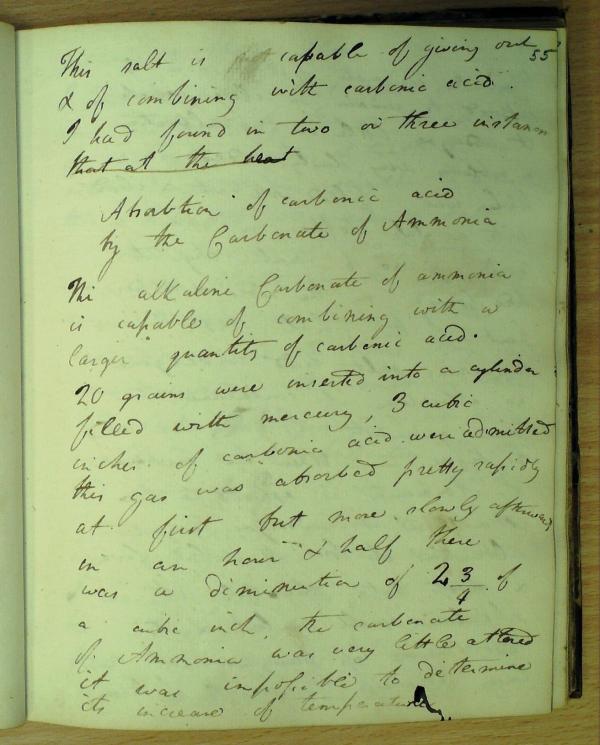 55
This salt is not capable of giving out
& of combining with carbonic acid.
I had found in two or three instances
that at the heat
Absorbtion of carbonic acid
by the Carbonate of Ammonia
The alkaline Carbonate of ammonia
is capable of combining with a
larger quantity of carbonic acid.
20 grains were inserted into a cylinder
filled with mercury, 3 cubic
inches of carbonic acid were admitted
this gas was absorbed pretty rapidly
at first but more slowly afterwards
in an hour & half there
was a diminution of 2 3/4 of
a cubic inch, the carbonate
of Ammonia was very little altered
it was impossible to determine
its increase of temperature